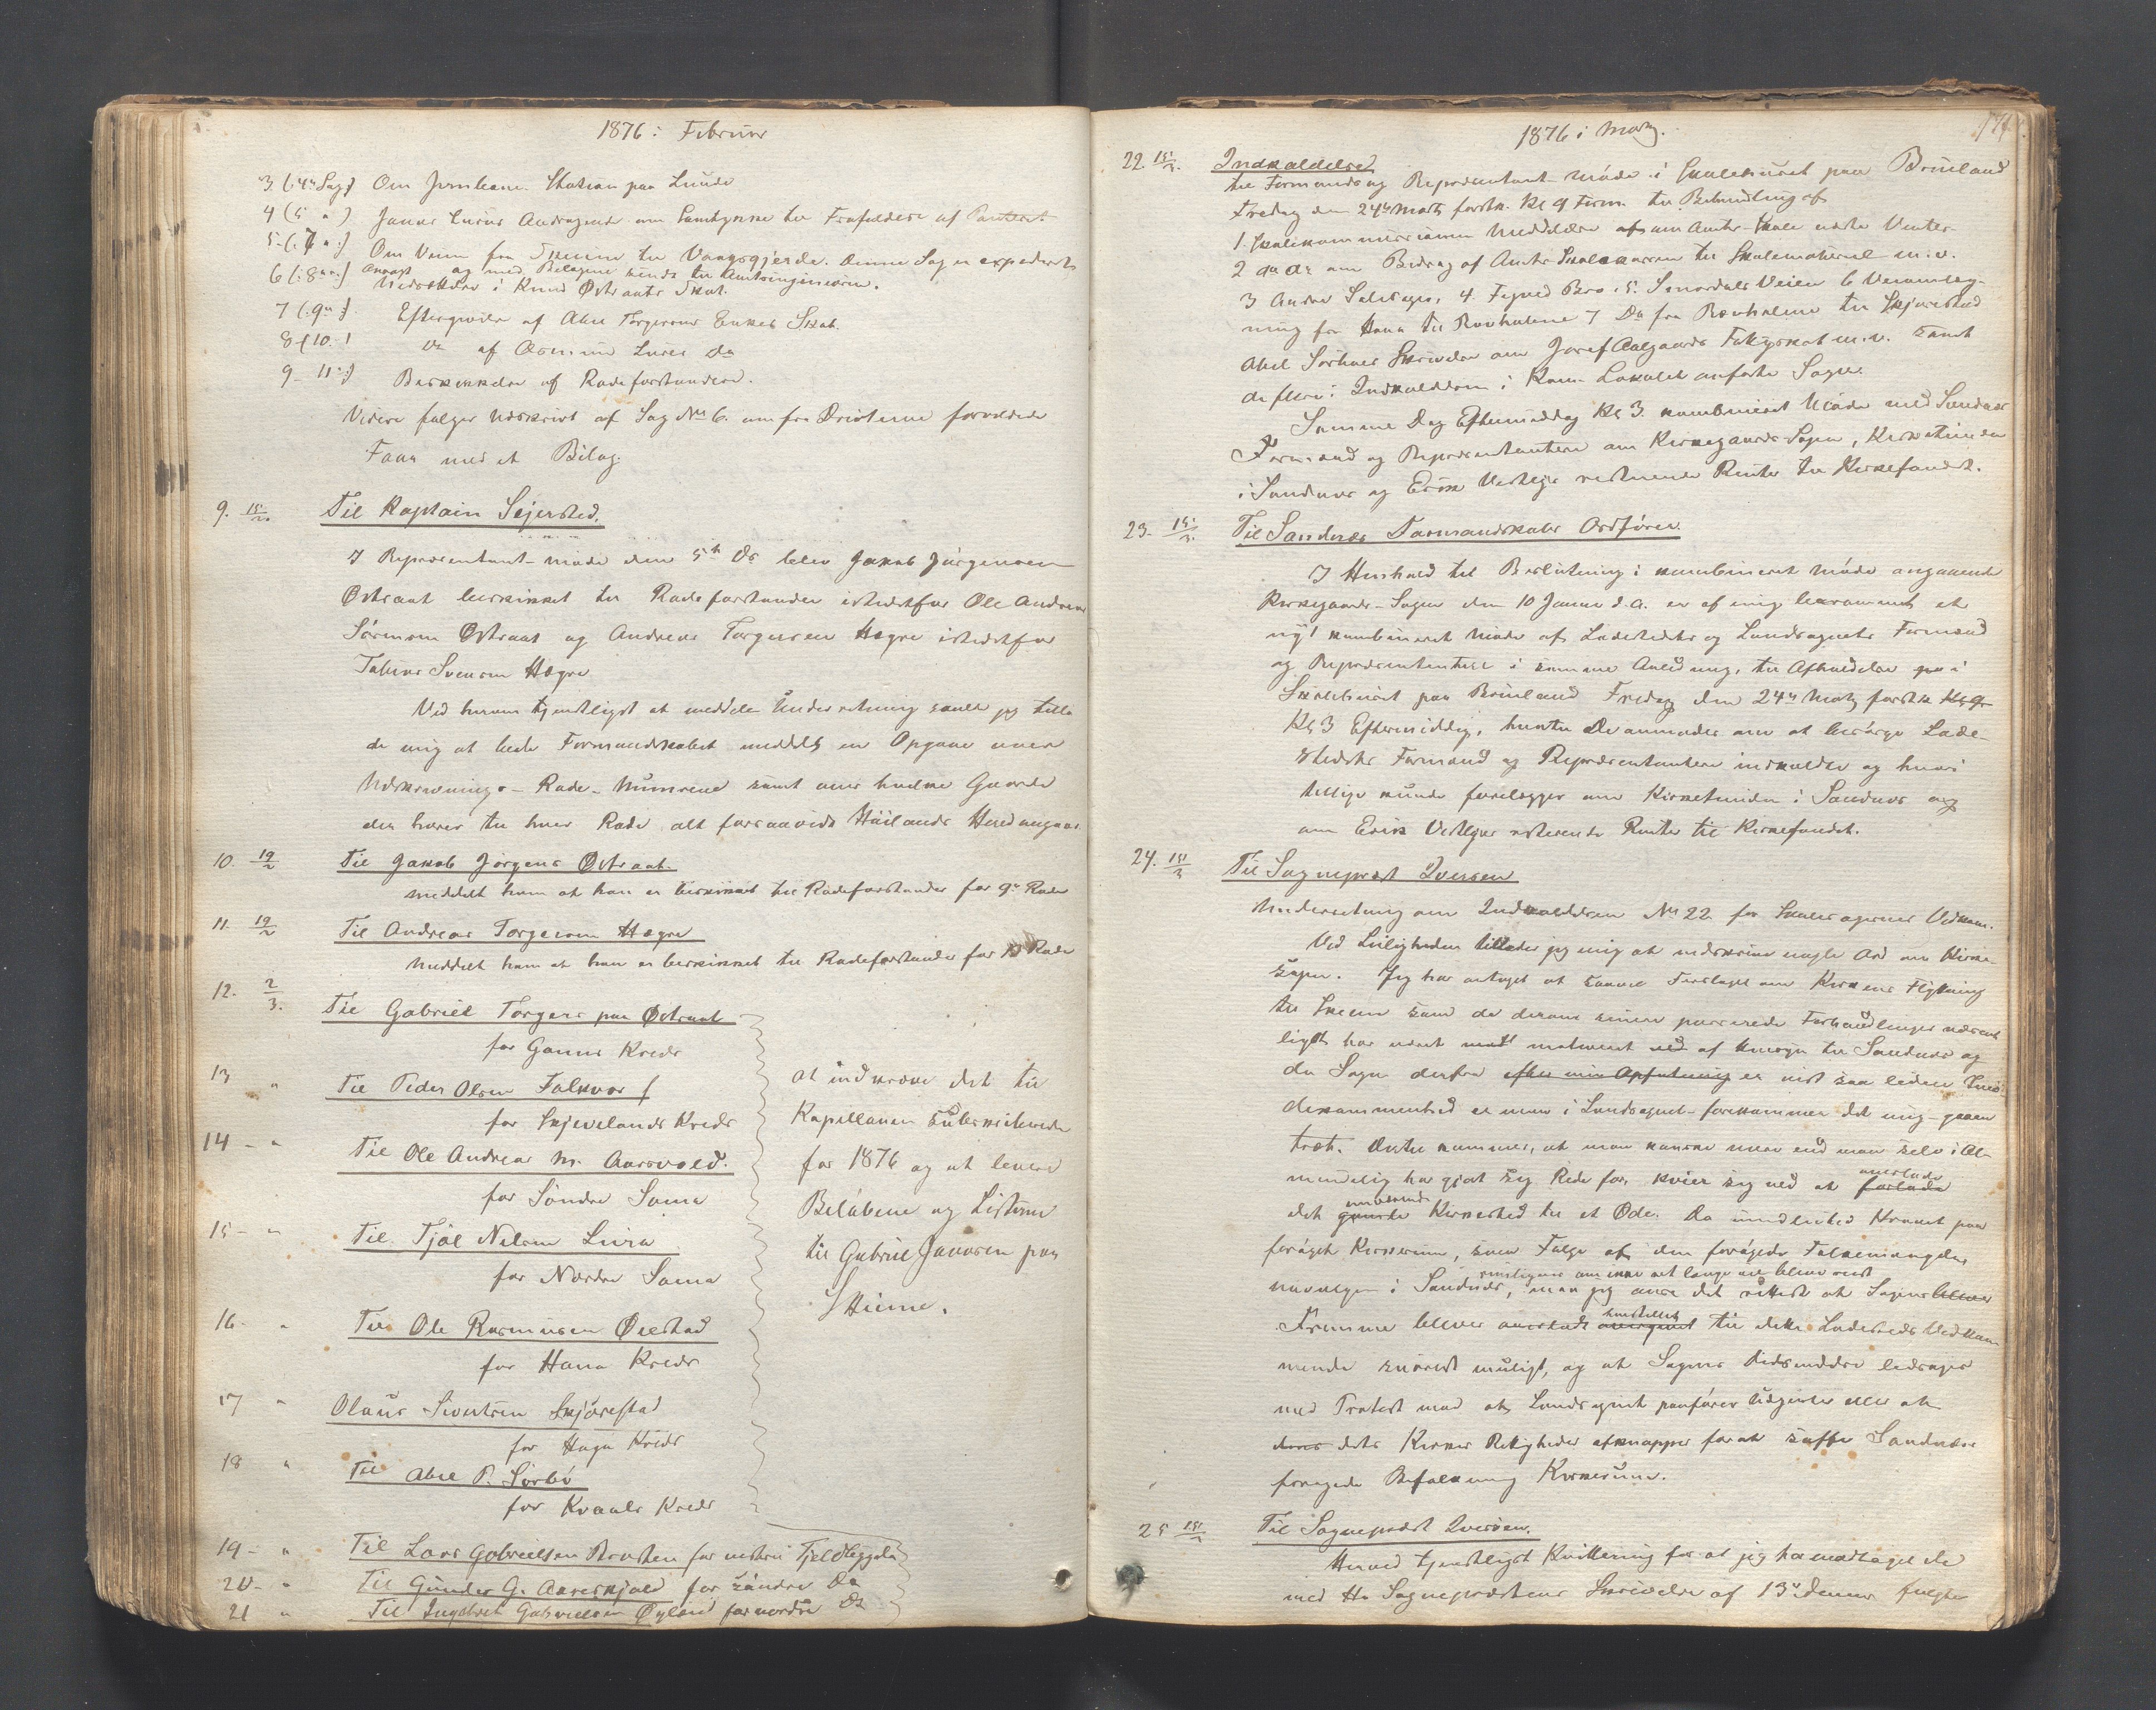 1876: Februar
3. (:4de Sag:) Om Jernbane Station paa Lunde
4 (5 " ) Jonas Luras Andragende om Samtykke til Frafaldelse af Panteret
5- (:7 " :) Om Veien fra Skeiene til Vaagsgjerde. Denne Sag er expederet
6 (:8 " :) og med Bilagene sendt til Amtsingeniøren.
Nedsættelse i Knud Østraats Skat.
7 (:9" :) Eftergivelse af Abel Torgersens Enkes Skat.
8 (10. ! Do af Asmund Luras Do
9- 11":) Beskikkelse af Rodeforstandere.
Videre følger Udskrivt af Sag No 6. om fra Drivterne forvoldede
Faar med et Bilag.
9. 15/2. Til Kaptain Sejersted.
I Repræsentant-møde den 5te Ds blev Jakob Jørgensen
Østraat beskikket til Rodeforstander istedetfor Ole Andreas
Sørensen Østraat og Andreas Torgersen Hogre istedetfor
Tobias Svensen Hogre
Ved herom tjenstligst at meddele Underretning skulde jeg tilla
de mig at bede Formandskabet meddelt en Opgave over
Udskrivnings-Rode-Numrene samt over hvilke Gaarde
der hører til hver Rode, alt forsaavidt Høilands Herred angaar.
10. 19/2 Til Jakob Jørgens Østraat.
Meddelt ham at han er beskikket til Rodeforstander for 9de Rode
11. 19/2 Til Andreas Torgersen Hogre
Meddelt ham at han er beskikket til Rodeforstander for 10 Rode
12. 2/3. Til Gabriel Torgers paa Østraat
for Ganns Kreds
13 " Til Peder Olsen Folkvor
for Skjevelands Kreds
14 - " Til Ole Andreas M. Aarsvold.
for Søndre Soma
15- " Til Tjøl Nilsen Lura
for Nordre Soma
16- " Til Ole Rasmusen Øelstad
for Hana Kreds
17 " Olaus Sivertsen Skjørestad
for Høga Kreds
18 " Til Abel P. Sørbø
for Kvaals Kreds
at indkræve det til
Kapellanen subskriberede
for 1876 og at levere
Beløbene og Listerne
til Gabriel Jonassen paa
Skiene.
19- " Til Lars Gabrielsen Bråsten for vestre Fjeldbygda
20- " Til Gunder G. Aareskjold for søndre Do
21 " Til Ingebret Gabrielsen Øglænd for nordre Do
1876 i Marts.
22. 15/3. Indkaldelse
til Formands og Repræsentant-Møde i Skolehuset paa Brueland
Fredag den 24de Marts førstk. Kl 9 Form. til Behandling af
1. Skolekommissionens Meddelelse om Amts-Skole næste Vinter
2 do do om Bidrag af Amts-Skolekassen til Skolemateriel m.v.
3 Andre Skolesager, 4. Figved Bro. 5. Smørdals Veien 6 Veianlæg-
ning fra Hana til Rovholene 7 Do fra Rovholene til Skjørestad
Abel Sørbøes Skrivelse om Josef Aalgaards Fattigskat m.v. samt
de flere i Indkaldelsen i Kom. Lokalet anførte Sager.
Samme Dag Eftermiddag Kl 3. kombineret Møde med Sandnes
Formænd og Repræsentantere om Kirkegaards-Sagen, Kirketienden
i Sandnes og Erik Vestlys resterende Renter til Kirkefondet.
23- 15/3. Til Sandnes Formandskabs Ordfører
I Henhold til Beslutning i kombineret Møde angaaende
Kirkegaards-Sagen den 10 Januar d.A. er af mig berammet et
nyt kombineret Møde af Ladestedets og Landsognets Formænd
og Repræsentantere i samme Anledning, til Afholdelse paa
Skolehuset paa Brueland Fredag den 24de Marts førstk. Kl 9
Kl 3 Eftermiddag, hvortil De anmodes om at besørge Lade-
stedets Formænd og Repræsentantere indkaldte og hvori
tillige kunde forelægges om Kirketienden i Sandnes og
om Erik Vestlys resterende Renter til Kirkefondet.
24. 15/3 Til Sogneprest Iversen
Underretning om Indkaldelsen No 22 for Skolesagernes Vedkom.
Ved Leiligheden tillader jeg mig at nedskrive nogle Ord om Kirke-
sagen. Jeg har antaget at saavel Forslaget om Kirkens Flytning
til Skeiene som de derom siden passerede Forhandlinger væsent
ligst har været motiveret af Hensyn til Sandnes og
da Sagen derfra efter min Opfatning er vist saa liden Imø-
dekommenhed er man i Landsognet forekommer det mig - gaaen
træt. Dertil kommer, at man kanske mere end man selv i Al-
mindelig har gjort sig Rede for, kvier sig ved at forlade overlade
det gamle nuværende Kirkested til et Øde. Da imidlertid Kravet paa
forøget Kirkerum, som Følge af den forøgede Folkemængde,
navnlig i Sandnes, rimeligvis om ikke ret længe vil blive reist
maa jeg anse det rettest at Sagens blever
Fremme bliver overladt overgivet henstillet til dette Ladesteds Vedkom
mende snarest muligt, og at Sagens Tidsenddre ledsages
med Protest mod at Landsognet paaføres Udgivter eller at
deres dets Kirkes Rettigheder afknappes for at skaffe Sandnæs
forøgede Befolkning Kirkerum.
25 15/3 Til Sogneprest Iversen.
Herved tjenstligst Kvittering for at jeg har modtaget de
med Hr. Sogneprestens Skrivelse af 13de dennes fulgte